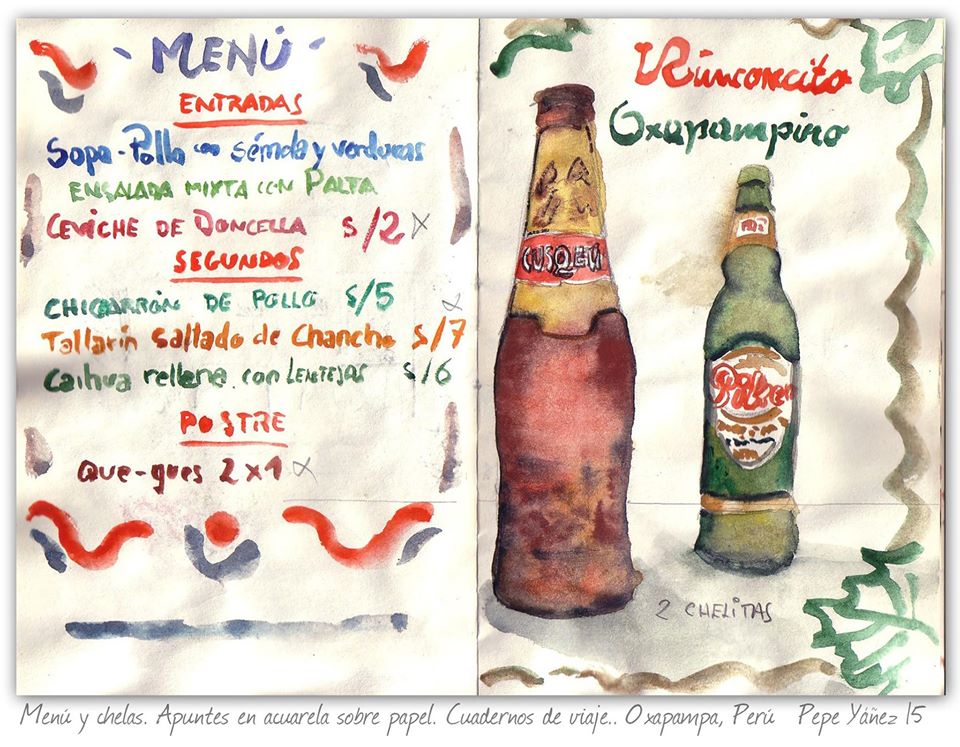 MENÚ
ENTRADAS
Sopa-Pollo con sémda y verduras
ENSALADA MIXTA CON PALTA
CEVICHE DE DONCELLA S/2
SEGUNDOS
CHICARRÓN DE POLLO S/5
Tallarín Saltado de Chancho S/7
Caihua rellena con LENTEJAS S/6
POSTRE
QUE-QUES 2X1
Rinconcito
Oxapampino
CUSQUEÑ
Pilsen
2 CHELITAS
Menú y chelas. Apuntes en acuarela sobre papel. Cuadernos de viaje.. Oxapampa, Perú Pepe Yáñez 15